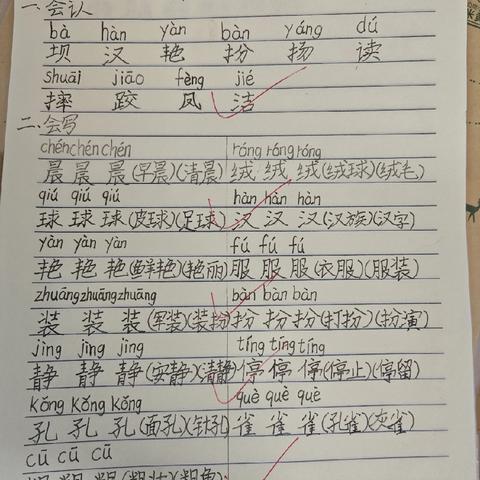 一、会认
bà hàn yàn bàn yáng dú
坝 汉 艳 扮 扬 读
shuāi jiāo fèng jié
摔 跤 凤 洁
二、会写
chén chén chén róng róng róng
晨 晨 晨(早晨)(清晨) 绒 绒 绒(绒球)(绒毛)
qiú qiú qiú hàn hàn hàn
球 球 球(皮球)(足球) 汉 汉 汉(汉族)(汉字)
yàn yàn yàn fú fú fú
艳 艳 艳(鲜艳)(艳丽) 服 服 服(衣服)(服装)
zhuāng zhuāng zhuāng bàn bàn bàn
装 装 装(军装)(装扮) 扮 扮 扮(打扮)(扮演)
jìng jìng jìng tíng tíng tíng
静 静 静(安静)(清静) 停 停 停(停止)(停留)
kǒng kǒng kǒng què què què
孔 孔 孔(面孔)(针孔) 雀 雀 雀(孔雀)(灰雀)
cū cū cū